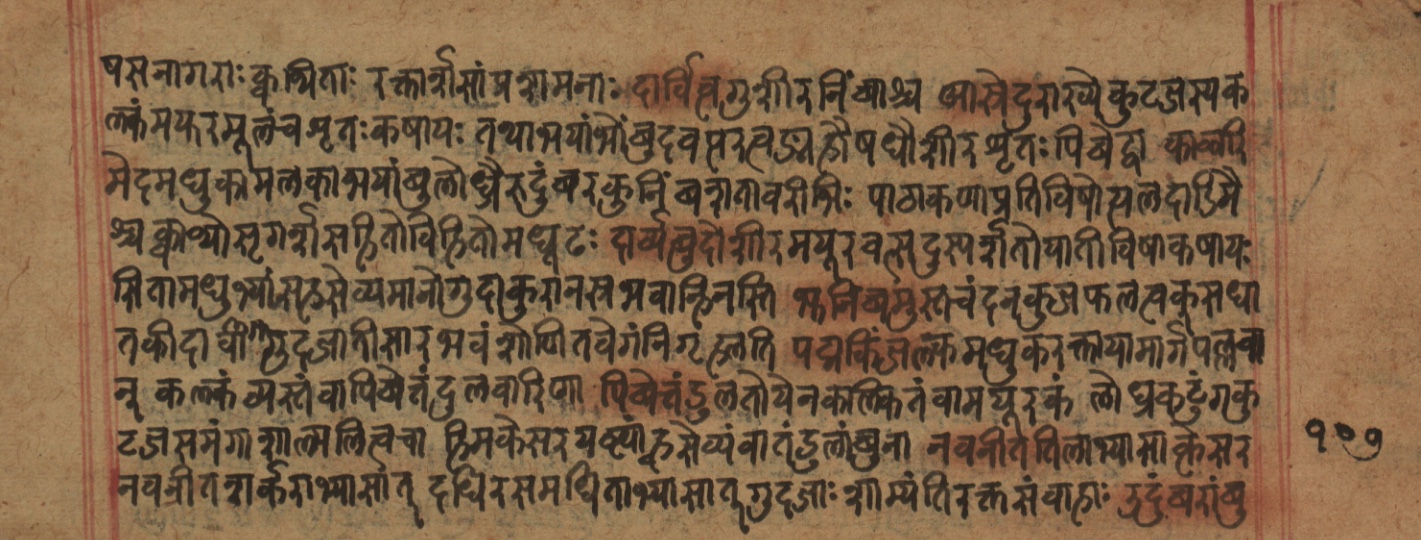 षसनागराः क्वथिताः रक्तार्शसां प्रशमनाः दार्वित्वगुशीरनिंबाश्च आस्रेदुरास्ये कुटजस्यक
ल्कं मयूरमूलं च शृतः कषायः तथाभयांभोंबुदवत्सरत्वङ्महौषधौशीरशृतः पिबेद्वा काश्मरि
मेदमधुकामलकाभयांबुलोध्रैरुदुंबरकुनिंबशतावरीभिः पाठाकणाप्रतिविषोत्पलदाडिमै
श्च क्वाथोसृगर्शसहितो विहितो मधूटः दार्व्यंबुदोशीरमयूरवत्सदुस्पर्शतोयातीविषाकषायः
सितामधुभ्यां सहसेव्यमानो गुदांकुरानस्रभवान्हिनस्ति भूनिंबमुस्तचंदनकुटजफलत्वक्सधा
तकीदार्वी गुदजातीसारभवं शोणितवेगं निगृह्णति पद्मकिंजल्कमधुकरक्तापामार्गपल्लवा
न् कल्कं व्यस्तं वा पिबेत्तंदुलवारिणा पिबेत्तंडुलतोयेन कल्कितं वा मयूरकं लोध्रकटुंगकु
टजसमंगाशाल्मलित्वचा हिमकेसरयष्ट्याह्वसेव्यं वा तंडुलांबुना नवनीततिलाभ्यासात्केसर
नवनीतशर्कराभ्यासात् दधिरसमथिताभ्यासात् गुदजाः शाम्यंति रक्तसंवाहाः उदुंबरांबु
१०७